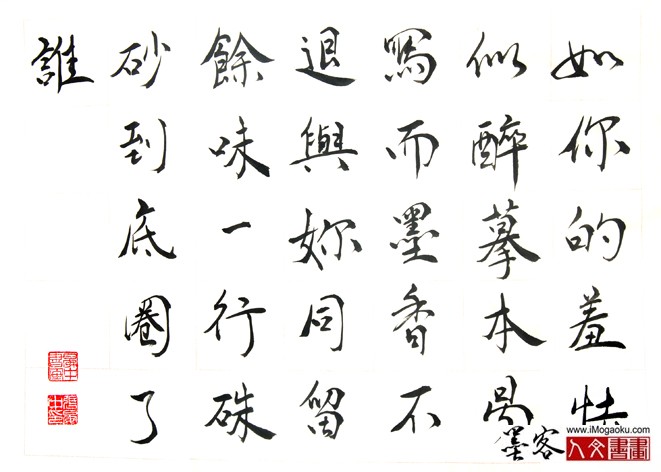 如你的羞怯
似醉摹本易
寫而墨香不
退與妳同留
餘味一行硃
砂到底圈了
誰
墨客
www.iMogaoku.com
人文書畫